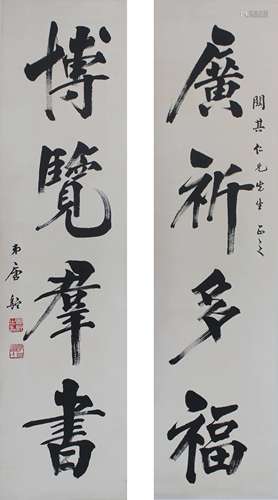 廣祈多福
開其仁兄先生正之
博覽羣書
弟唐駝